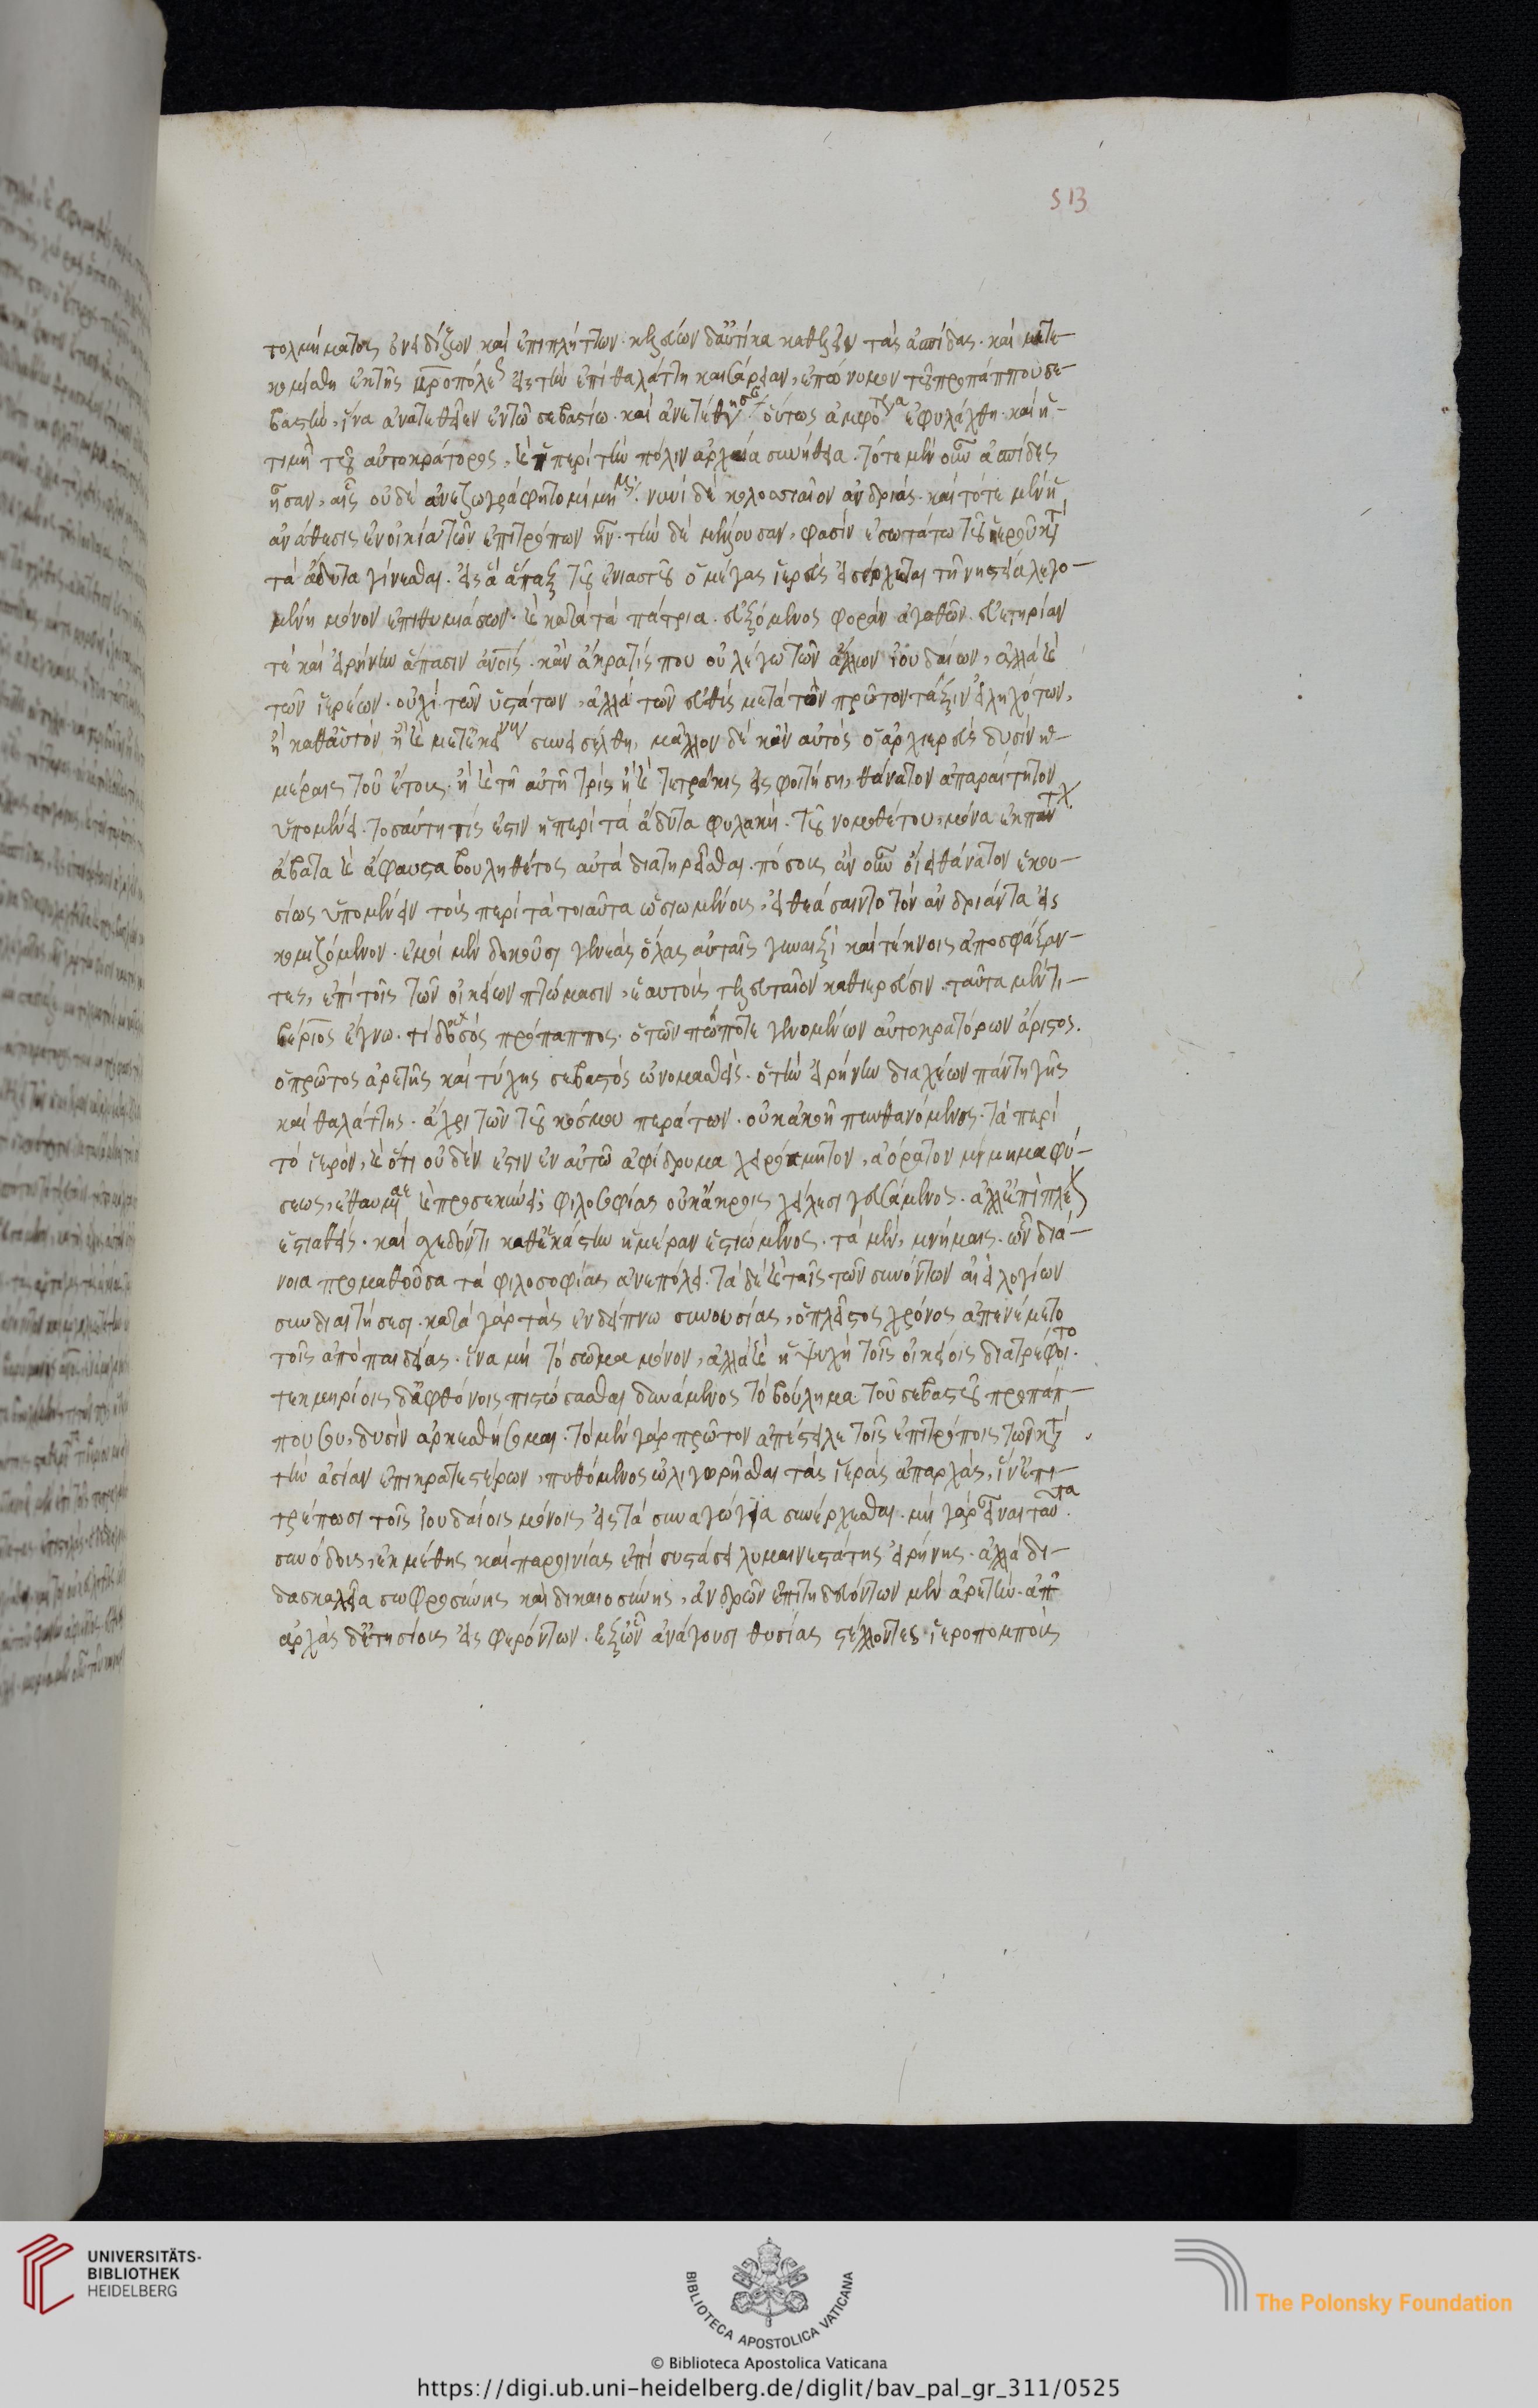 513
τολμήματος ὀνειδίζων καὶ ἐπιπλήττων. κελεύων δ' αὐτίκα καθελεῖν τὰς ἀσπίδας. καὶ μετε-
κομίσθη ἐκ τῆς μητροπόλεως εἰς τὴν ἐπὶ θαλάττη καισάρειαν, ἐπώνυμον τοῦ προπάππου σε-
βαστὴν, ἵνα ἀνατεθεῖεν ἐν τῶ σεβαστίω. καὶ ἀνετέθησαν. οὕτως ἀμφότερα ἐφυλάχθη. καὶ ἡ
τιμὴ τοῦ αὐτοκράτορος, καὶ ἡ περὶ τὴν πόλιν ἀρχαία συνήθεια. τότε μὲν οὖν ἀσπίδες
ἦσαν, αἷς οὐδὲν ἀνεζωγράφητο μίμημα. νυνὶ δὲ κολοσσιαῖον ἀνδριάς. καὶ τότε μὲν ἡ
ἀνάθεσις ἐν οἰκία τῶν ἐπιτρόπων ἦν. τὴν δὲ μέλλουσαν, φασὶν ἐσωτάτω τοῦ ἱεροῦ κατὰ
τὰ ἄδυτα γίνεσθαι. εἰς ἃ ἅπαξ τοῦ ἐνιαυτοῦ ὁ μέγας ἱερεὺς εἰσέρχεται τῆ νηστεία λεγο-
μένη μόνον ἐπιθυμιάσων. καὶ κατὰ τὰ πάτρια. εὐξόμενος φορὰν ἀγαθῶν. εὐετηρίαν
τὲ καὶ εἰρήνην ἅπασιν ἀνθρώποις. κἂν ἄρα τίς που οὐ λέγω τῶν ἄλλων ἰουδαίων, ἀλλὰ καὶ
τῶν ἱερέων. οὐχὶ τῶν ὑστάτων, ἀλλὰ τῶν εὐθὺς μετὰ τὸν πρῶτον τάξιν εἰληχότων,
ἢ καθ' αὑτὸν ἢ καὶ μετ' ἐκείνου συνεισέλθη, μᾶλλον δὲ κἂν αὐτὸς ὁ ἀρχιερεὺς δυσὶν ἡ-
μέραις τοῦ ἔτους. ἢ καὶ τῆ αὐτῆ τρὶς ἢ καὶ τετράκις εἰσφοιτήση, θάνατον ἀπαραίτητον
ὑπομένει. τοσαύτη τίς ἐστιν ἡ περὶ τὰ ἄδυτα φυλακὴ. τοῦ νομοθέτου, μόνα ἐκ πάντων
ἄβατα καὶ ἄψαυστα βουληθέντος αὐτὰ διατηρεῖσθαι. πόσους ἂν οὖν οἴει θανάτους ἑκου-
σίως ὑπομένειν τοὺς περὶ τὰ τοιαῦτα ὡσιωμένους, εἰ θεάσαιντο τὸν ἀνδριάντα εἰσ
κομιζόμενον. ἐμοὶ μὲν δοκοῦσι γενεὰς ὅλας αὐταῖς γυναιξὶ καὶ τέκνοις ἀποσφάξαν-
τες, ἐπὶ τοῖς τῶν οἰκείων πτώμασιν, ἑαυτοὺς τελευταῖον καθιερεύσειν. ταῦτα μὲν τι-
βέριος ἔγνω. τί δὲ ὁ σὸς πρόπαππος. ὁ τῶν πώποτε γενομένων αὐτοκρατόρων ἄριστος.
ὁ πρῶτος ἀρετῆς καὶ τύχης σεβαστὸς ὠνομασθεὶς. ὁ τὴν εἰρήνην διαχέων πάντη γῆς
καὶ θαλάττης. ἄχρι τῶν τοῦ κόσμου περάτων. οὐκ ἀκοῆ πυνθανόμενος. τὰ περὶ
τὸ ἱερὸν, καὶ ὅτι οὐδὲν ἐστιν ἐν αὐτῶ ἀφίδρυμα χειρόκμητον, ἀόρατον μίμημα φύ-
σεως, ἐθαύμαζε καὶ προσεκύνει; φιλοσοφίας οὐκ ἄκροις χείλεσι γευσάμενος. ἀλλ' ἐπὶ πλέον
ἑστιαθεὶς. καὶ σχεδόν τι καθ' ἑκάστην ἡμέραν ἑστιώμενος. τὰ μὲν, μνήμαις. ὧν διά-
νοια προμαθοῦσα τὰ φιλοσοφίας ἀνεπόλει. τὰ δὲ καὶ ταῖς τῶν συνόντων ἀεὶ λογίων
συνδιαιτήσεσι. κατὰ γὰρ τὰς ἐν δείπνω συνουσίας, ὁ πλεῖστος χρόνος ἀπενέμετο
τοῖς ἀπὸ παιδείας. ἵνα μὴ τὸ σῶμα μόνον, ἀλλὰ καὶ ἡ ψυχὴ τοῖς οἰκείοις διατρέφοιτο.
τεκμηρίοις δ' ἀφθόνοις πιστώσασθαι δυνάμενος τὸ βούλημα τοῦ σεβαστοῦ προπάπ-
που σου, δυσὶν ἀρκεσθήσομαι. τὸ μὲν γὰρ πρῶτον ἀπέστειλε τοῖς ἐπιτρόποις τῶν κατὰ
τὴν ἀσίαν ἐπικρατειστέρων, πυθόμενος ὠλιγωρῆσθαι τὰς ἱερὰς ἀπαρχὰς, ἵν' ἐπι-
τρέπωσι τοῖς ἰουδαίοις μόνοις εἰς τὰ συναγώγια συνέρχεσθαι. μὴ γὰρ εἶναι ταῦτα
συνόδους, ἐκ μέθης καὶ παροινίας ἐπὶ συστάσει λυμαινεστάτης εἰρήνης. ἀλλὰ δι-
δασκαλεῖα σωφροσύνης καὶ δικαιοσύνης, ἀνδρῶν ἐπιτηδευόντων μὲν ἀρετὴν. ἀπ
αρχὰς δ' ἐτησίους εἰσφερόντων. ἐξ ὧν ἀνάγουσι θυσίας στέλλοντες ἱεροπομποὺς
UNIVERSITÄTS-
BIBLIOTHEK
HEIDELBERG
BIBLIOTECA APOSTOLICA VATICANA
The Polonsky Foundation
© Biblioteca Apostolica Vaticana
https://digi.ub.uni-heidelberg.de/diglit/bav_pal_gr_311/0525